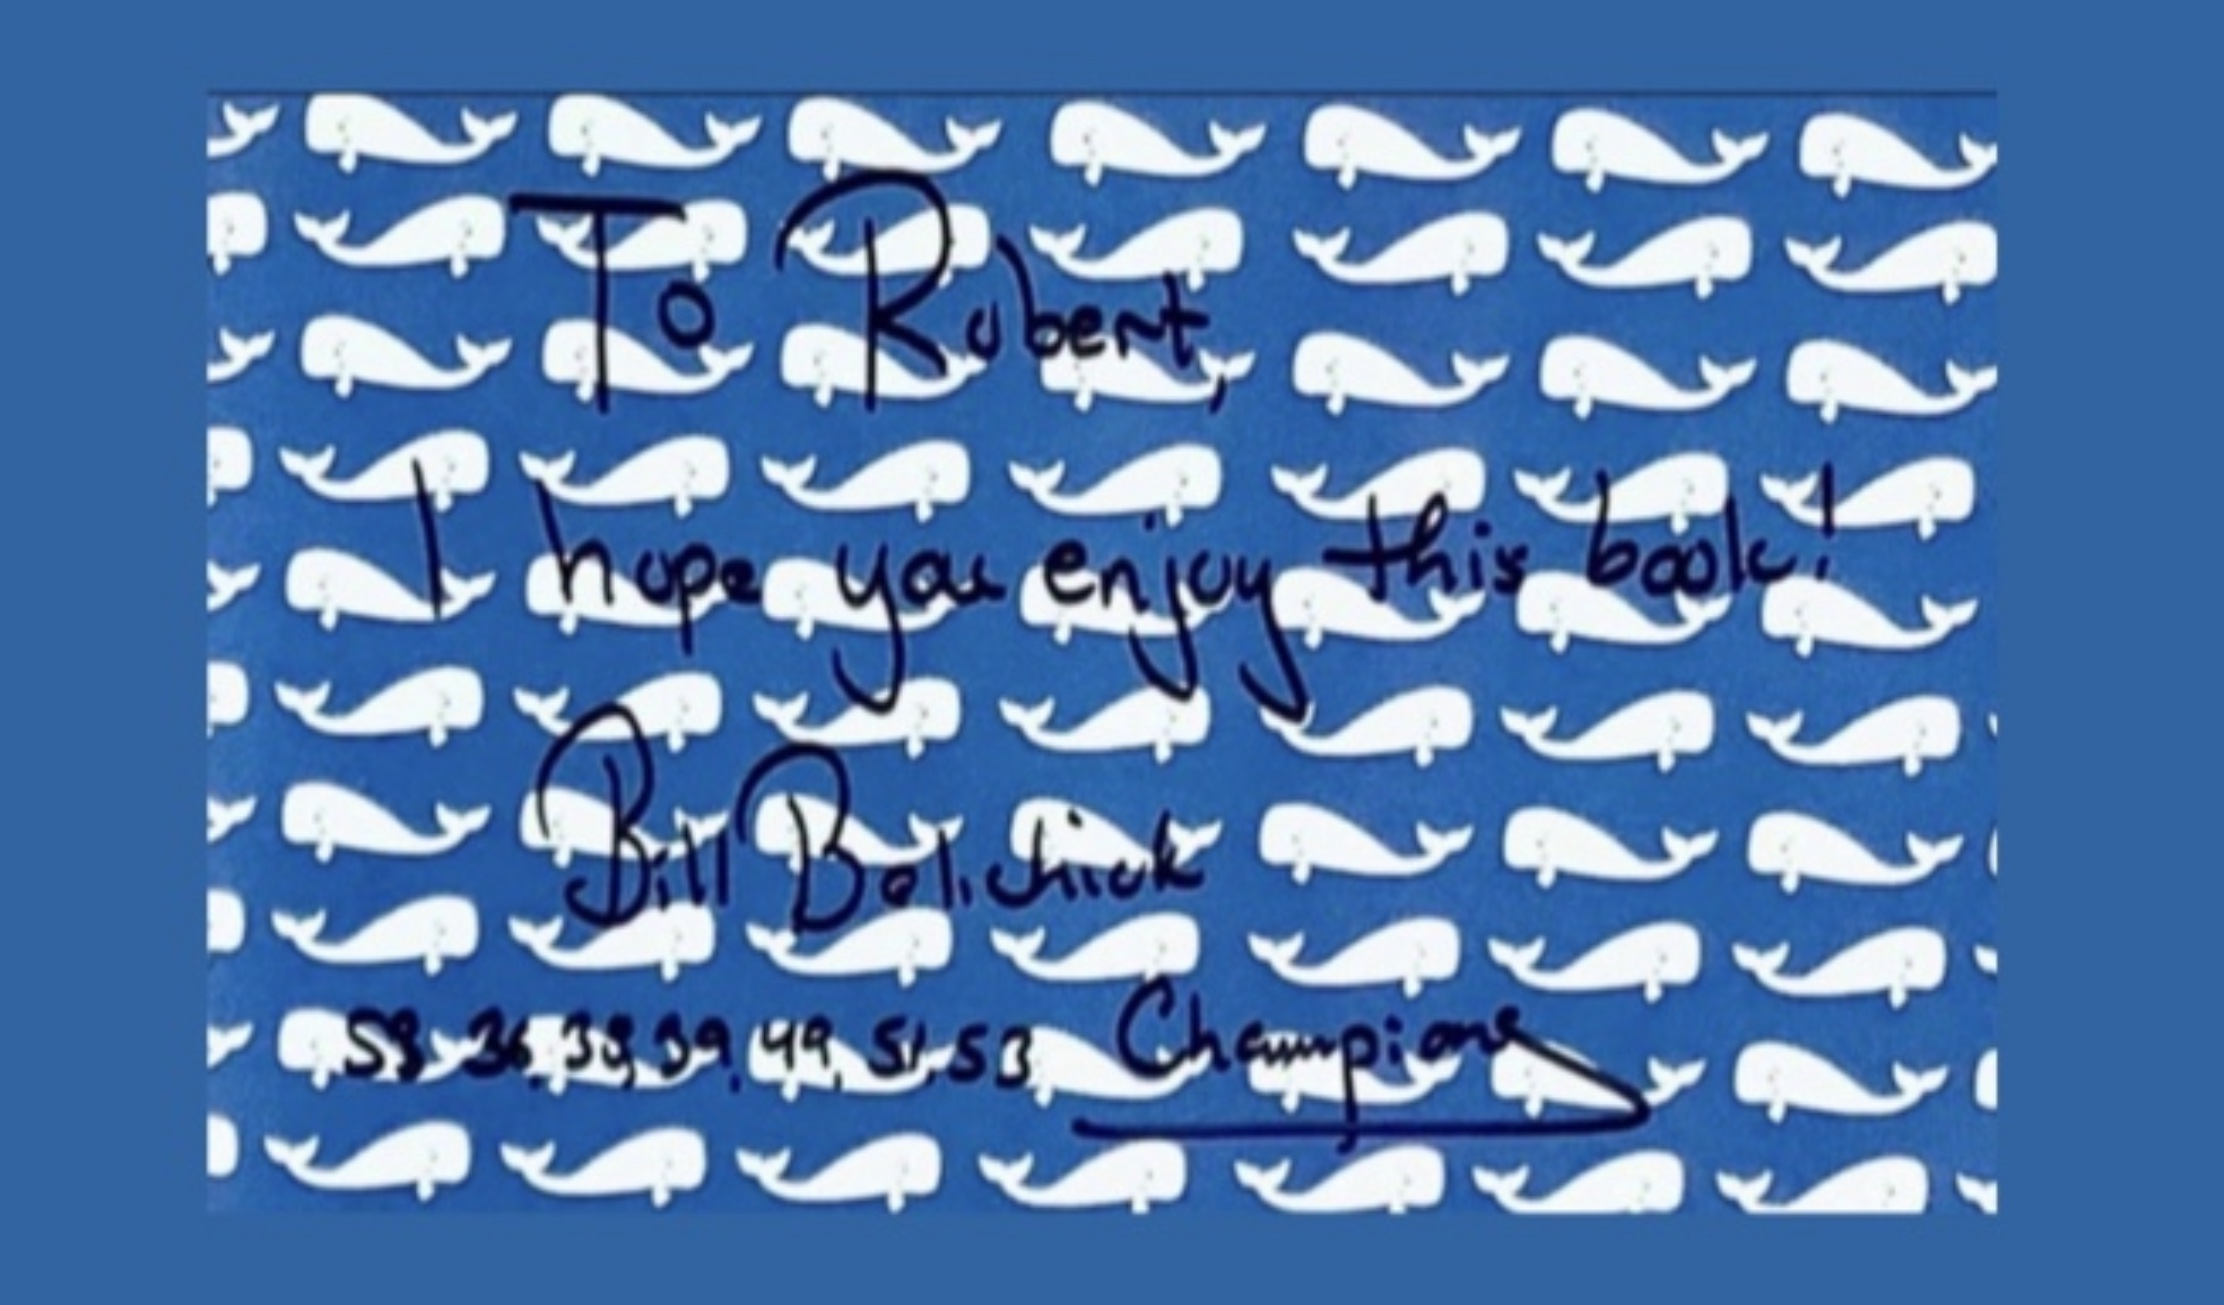 To Robert,
I hope you enjoy this book!
Bill Belichick
SB 36, 38, 39, 49, 51, 53 Champions